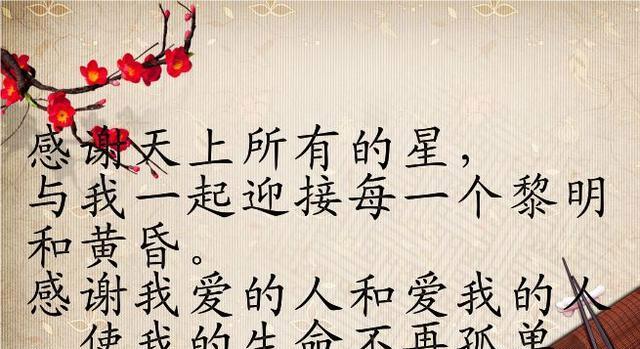 感谢天上所有的星，
与我一起迎接每一个黎明
和黄昏。
感谢我爱的人和爱我的人
使我的生命不再孤单